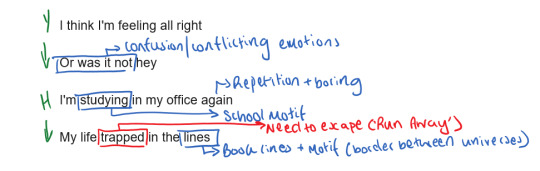 Y I think I'm feeling all right
→ Confusion/conflicting emotions
Or was it not hey
→ Repetition + boring
H I'm studying in my office again
→ School Motif
→ Need to exape ('Run Array')
My life trapped in the lines
→ Book lines + Motif (border between universes)